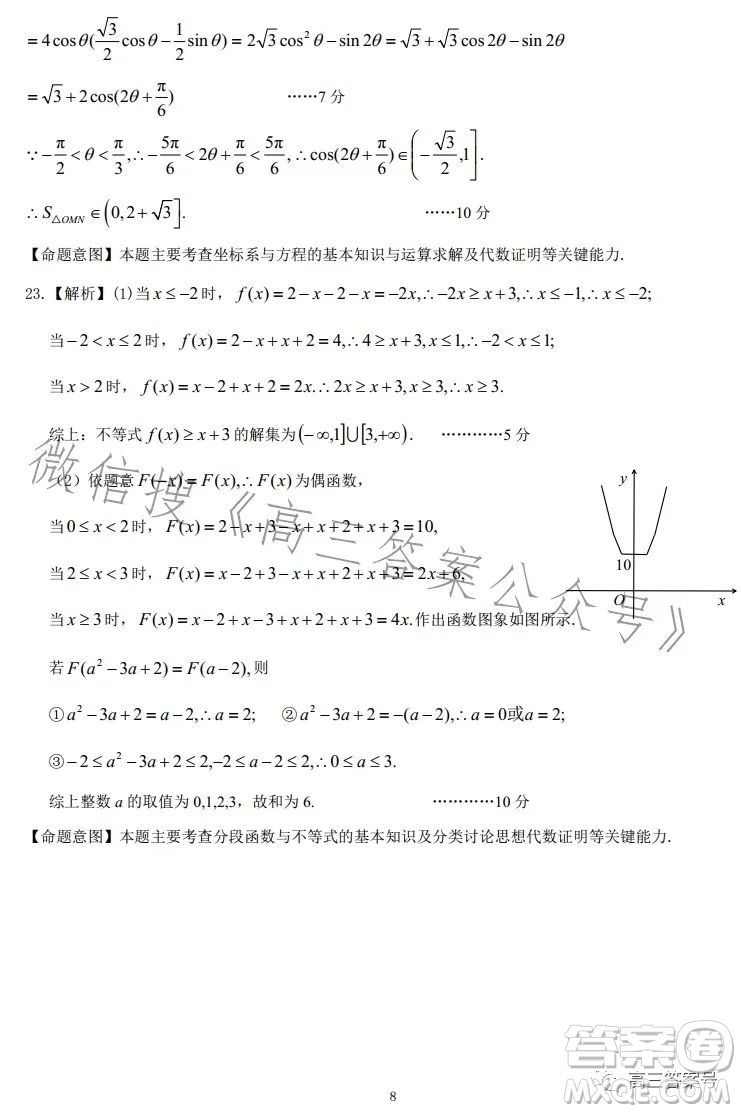 =4cosθ(√3/2 cosθ−1/2 sinθ)=2√3cos²θ−sin2θ=√3+√3cos2θ−sin2θ
=√3+2cos(2θ+π/6) ……7 分
∵−π/2<θ<π/3,∴−5π/6<2θ+π/6<5π/6,∴cos(2θ+π/6)∈(−√3/2,1].
∴S△OMN∈(0,2+√3]. ……10 分
【命题意图】本题主要考查坐标系与方程的基本知识与运算求解及代数证明等关键能力.
23.【解析】(1)当x≤−2时，f(x)=2−x−2−x=−2x,∴−2x≥x+3,∴x≤−1,∴x≤−2;
当−2<x≤2时，f(x)=2−x+x+2=4,∴4≥x+3,x≤1,∴−2<x≤1;
当x>2时，f(x)=x−2+x+2=2x.∴2x≥x+3,x≥3,∴x≥3.
综上：不等式f(x)≥x+3的解集为(−∞,1]∪[3,+∞). …………5 分
（2）依题意F(−x)=F(x),∴F(x)为偶函数，
当0≤x<2时，F(x)=2−x+3−x+x+2+x+3=10,
当2≤x<3时，F(x)=x−2+3−x+x+2+x+3=2x+6,
当x≥3时，F(x)=x−2+x−3+x+2+x+3=4x.作出函数图象如图所示.
y
10
O
x
若F(a²−3a+2)=F(a−2),则
①a²−3a+2=a−2,∴a=2; ②a²−3a+2=−(a−2),∴a=0或a=2;
③−2≤a²−3a+2≤2,−2≤a−2≤2,∴0≤a≤3.
综上整数 a 的取值为 0,1,2,3，故和为 6. …………10 分
【命题意图】本题主要考查分段函数与不等式的基本知识及分类讨论思想代数证明等关键能力.
微信搜《高三答案公众号》
答案卷
高三答案号
MXQE.COM
8